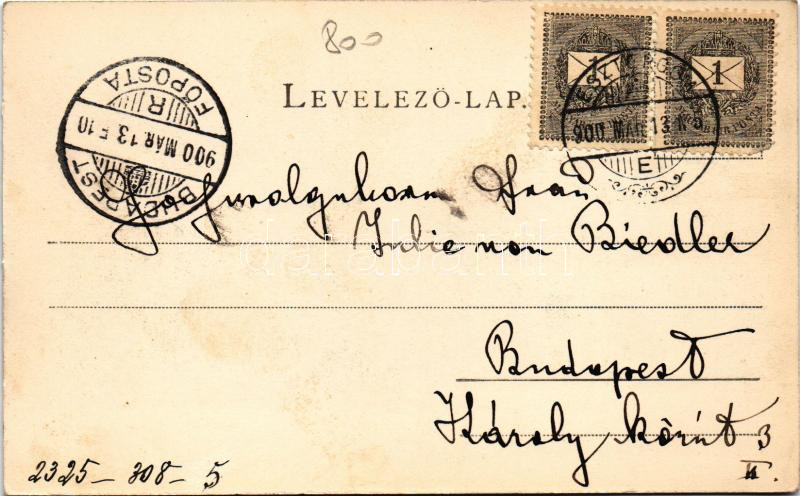 800
LEVELEZŐ-LAP.
1
1
ESZTERGOM
900 MAR. 13
E
BUDAPEST
900 MAR. 13 E 10
R
FŐPOSTA
Frau
Julie von Biedler
Budapest
Károly körút 3
II.
2325 - 308 - 5
darabanth